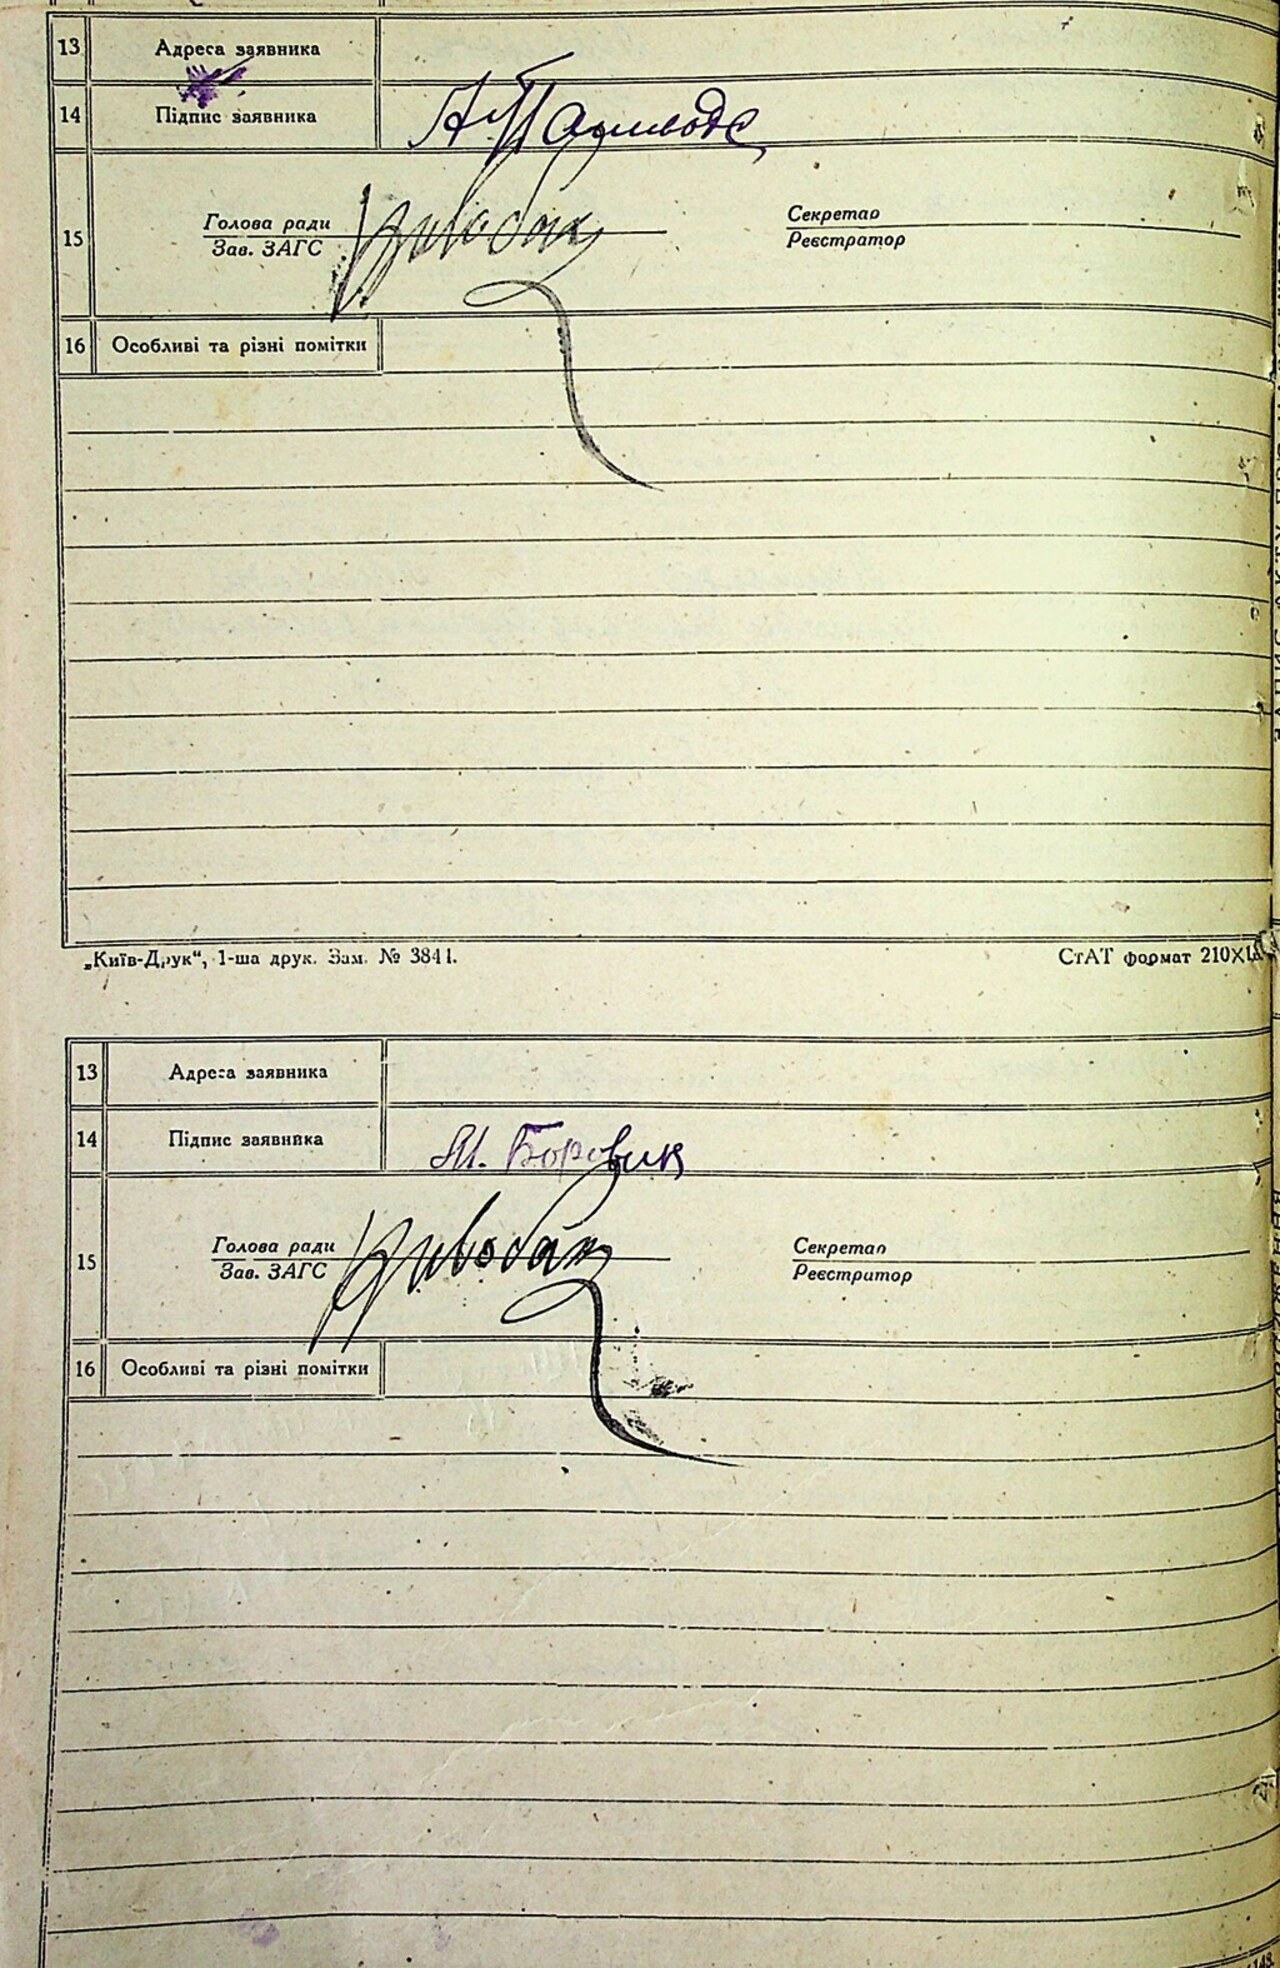 13 Адреса заявника
14 Підпис заявника
15 Голова ради Секретар
Зав. ЗАГС Реєстратор
16 Особливі та різні помітки
„Київ-Друк“, 1-ша друк. Зам. № 3841. СтАТ формат 210×
13 Адреса заявника
14 Підпис заявника М. Боровик
15 Голова ради Секретар
Зав. ЗАГС Реєстратор
16 Особливі та різні помітки